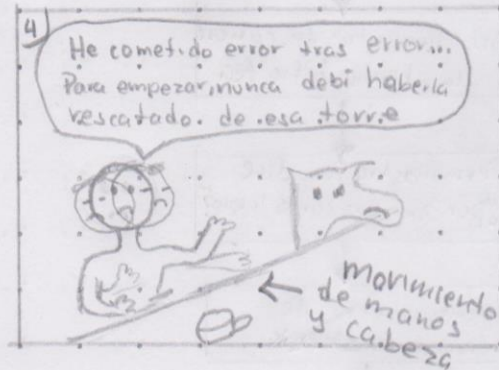 4
He cometido error tras error...
Para empezar, nunca debí haberla
rescatado. de esa torre
movimiento
de manos
y cabeza